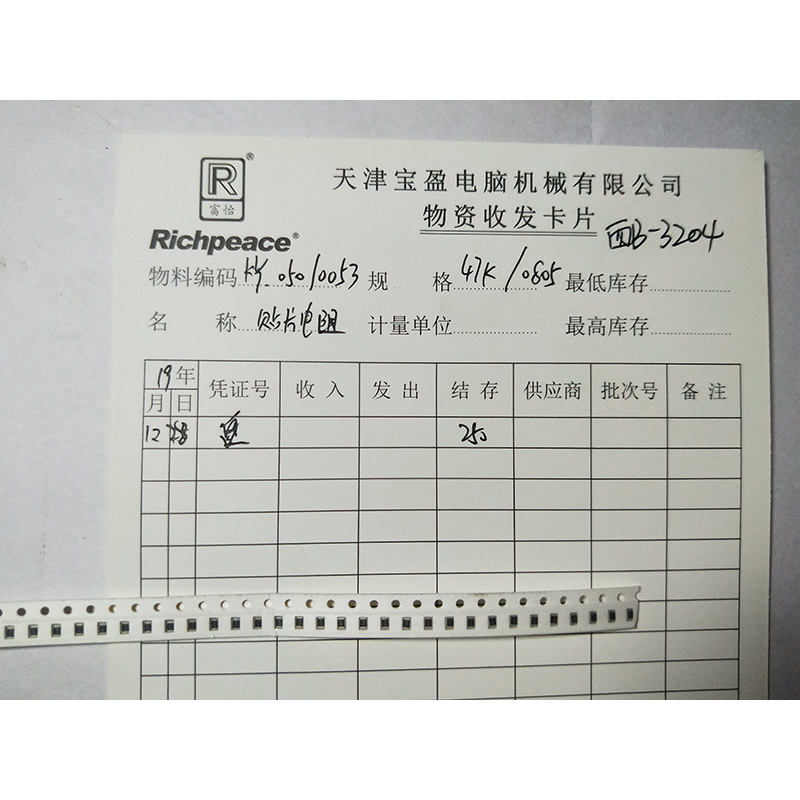 R®
富怡
Richpeace®
天津宝盈电脑机械有限公司
物资收发卡片
B-3204
物料编码 05010053 规 格 47K/0805 最低库存
名 称 贴片电阻 计量单位 最高库存
19年 凭证号 收入 发出 结存 供应商 批次号 备注
月 日
12 28 250